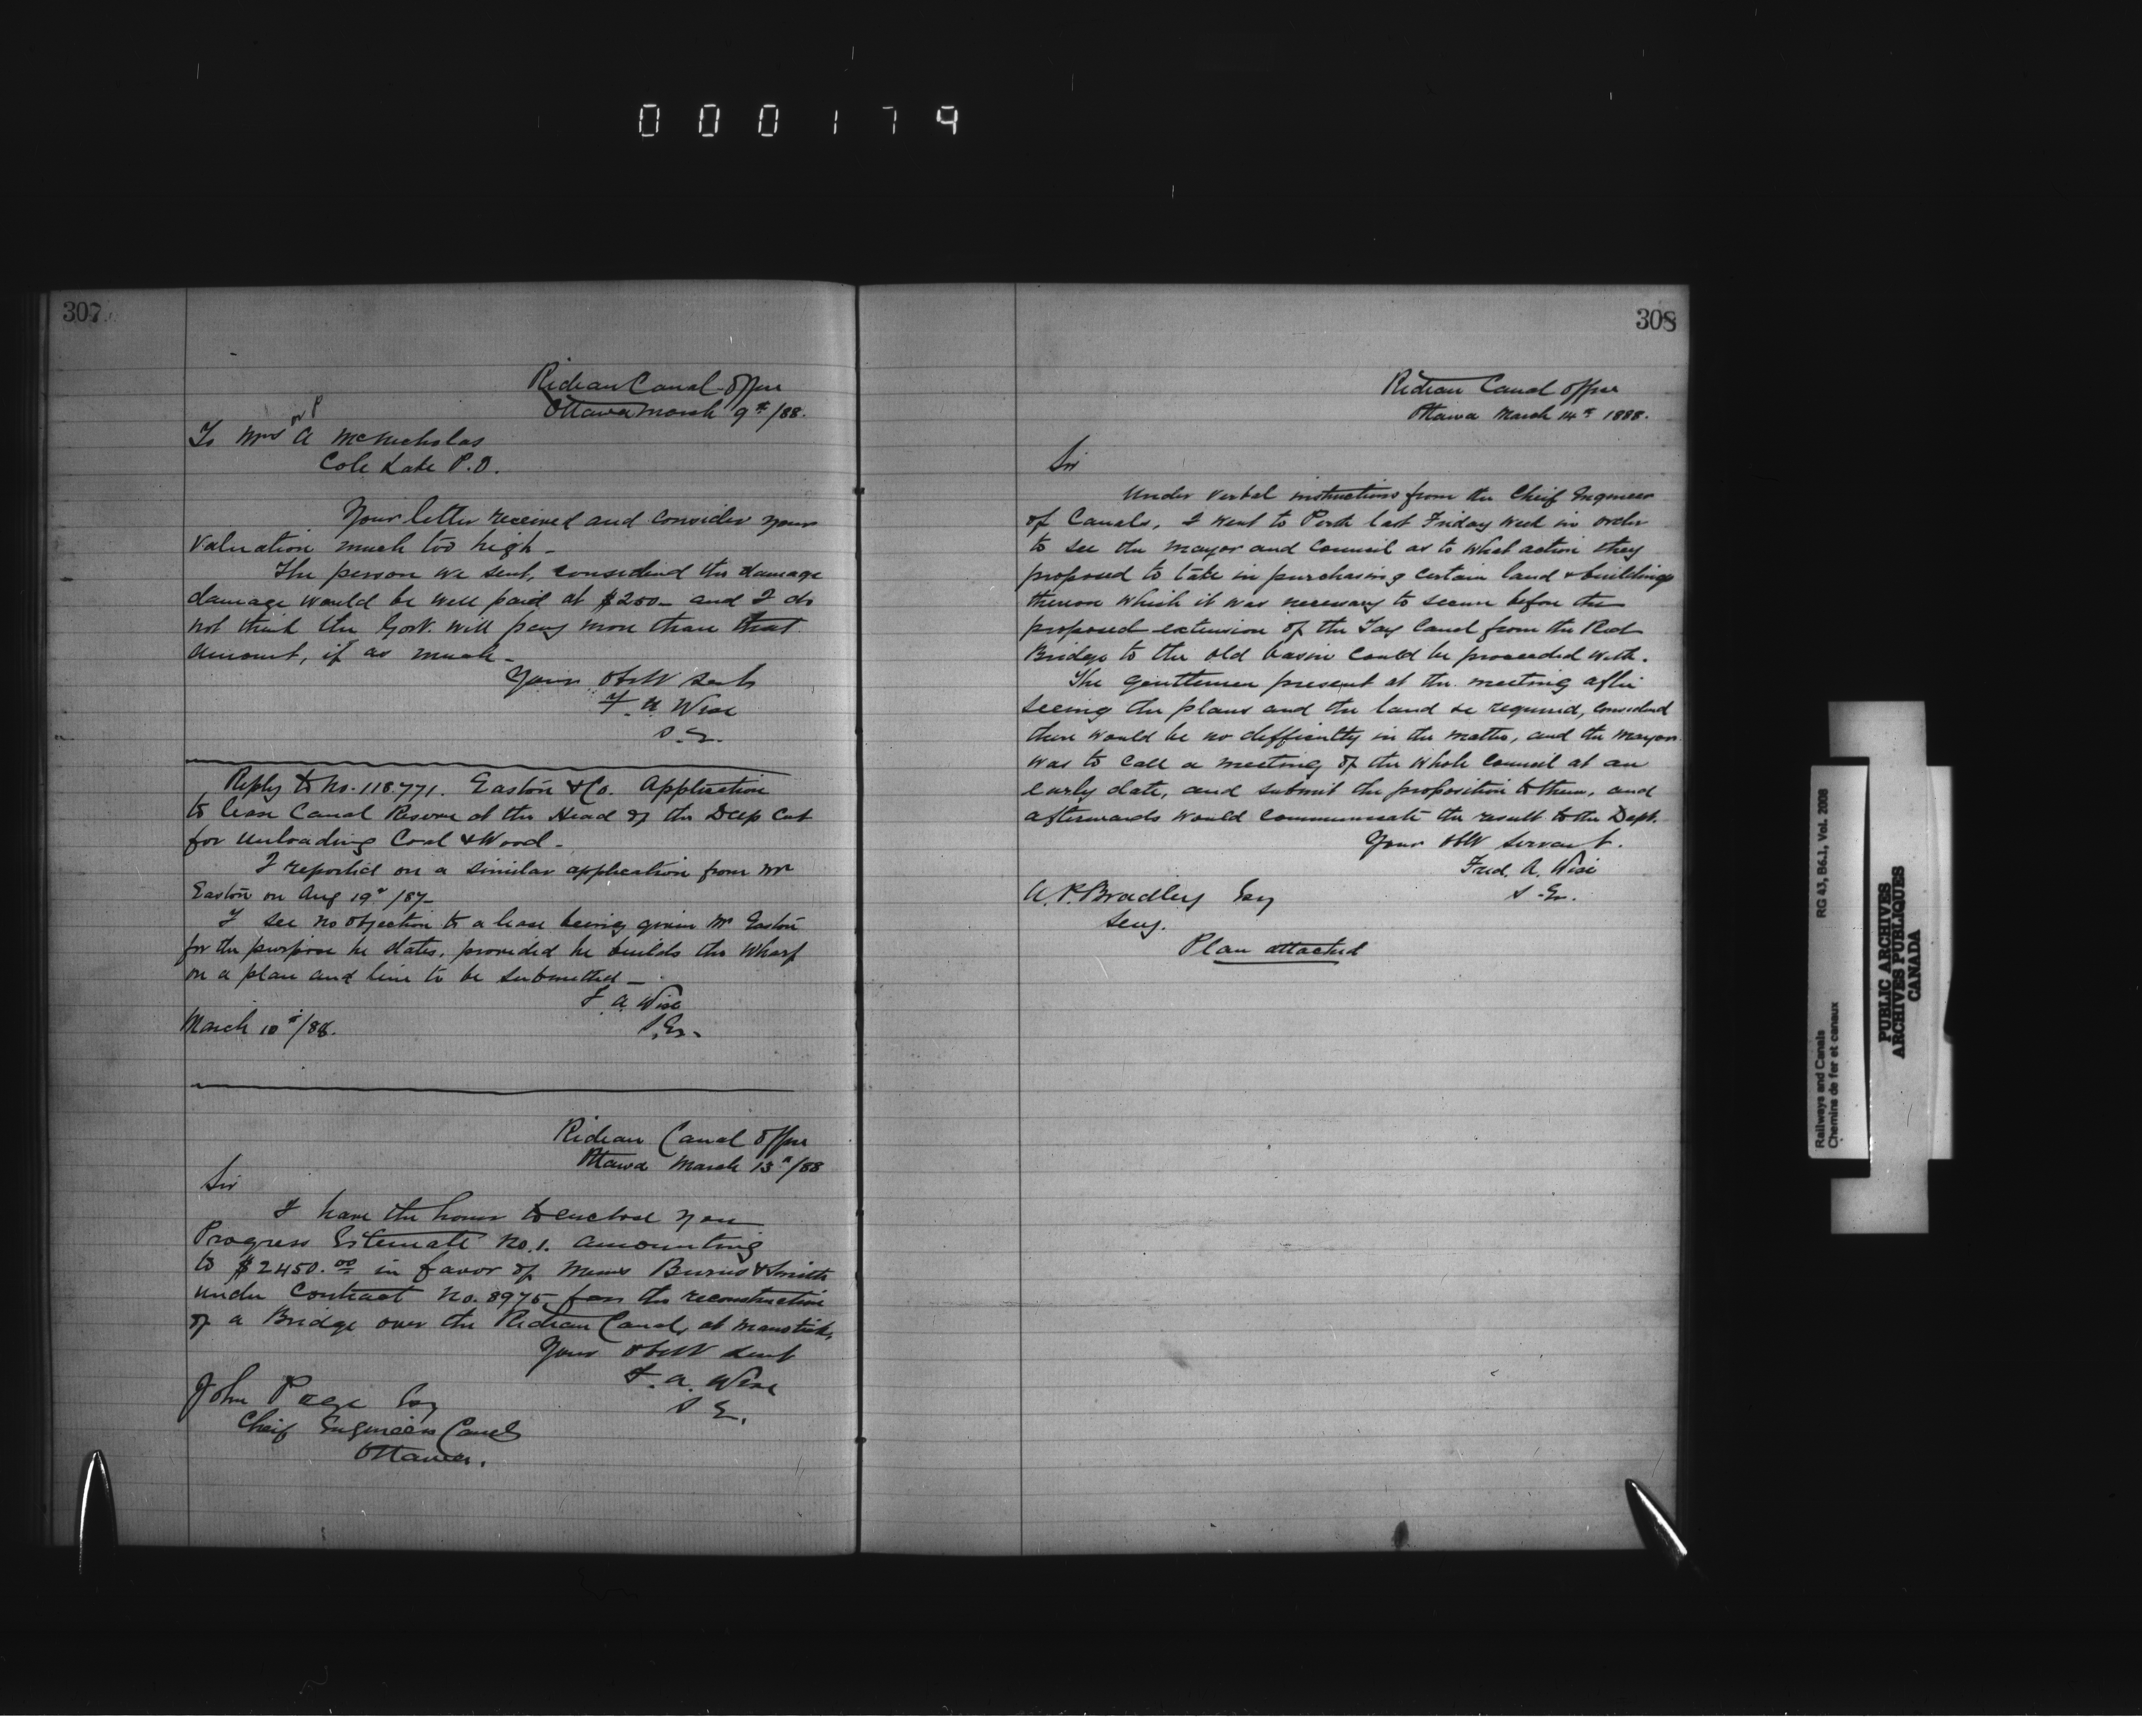 000179
307
Rideau Canal Office
Ottawa March 9th/88.
or P
To Mrs A McNicholas
Cole Lake P.O.
Your letter received and consider your
valuation much too high -
The person we sent, considered the damage
damage would be well paid at $200 - and I do
not think the Govt. will pay more than that
amount, if as much -
Yours obdt servt
F. A. Wise
S. E.
Reply to No. 118.771. Easton & Co. Application
to lease Canal Reserve at the Head of the Deep Cut
for unloading Coal & Wood -
I reported on a similar application from Mr
Easton on Aug 19th /87 -
I see no objection to a lease being given Mr Easton
for the purpose he states, provided he builds the wharf
on a plan and line to be submitted -
F. A. Wise
S. En.
March 10th/88.
Rideau Canal Office
Ottawa March 13th/88
Sir
I have the honor to enclose you
Progress Estimate No. 1. amounting
to $2450.00 in favor of Messrs Burns & Smith
under Contract No. 8975 for the reconstruction
of a Bridge over the Rideau Canal, at Manotick,
Your obdt servt
F. A. Wise
S E.
John Page Esq
Cheif Engineer Canals
Ottawa.
308
Rideau Canal Office
Ottawa March 14th 1888.
Sir
Under verbal instructions from the Cheif Engineer
of Canals, I went to Perth last Friday week in order
to see the Mayor and Council as to what action they
proposed to take in purchasing certain land & buildings
thereon which it was necessary to secure before the
proposed extension of the Tay Canal from the Red
Bridge to the old basin could be proceeded with.
The gentlemen present at the meeting after
seeing the plans and the land &c required, considered
there would be no difficulty in the matter, and the Mayor
was to call a meeting of the whole Council at an
early date, and submit the proposition to them, and
afterwards would communicate the result to the Dept.
Your obdt servant.
Fred. A. Wise
S. En.
A. P. Bradley Esq
Secy.
Plan attached
Railways and Canals
Chemins de fer et canaux
RG 43, B6.1, Vol. 2008
PUBLIC ARCHIVES
ARCHIVES PUBLIQUES
CANADA